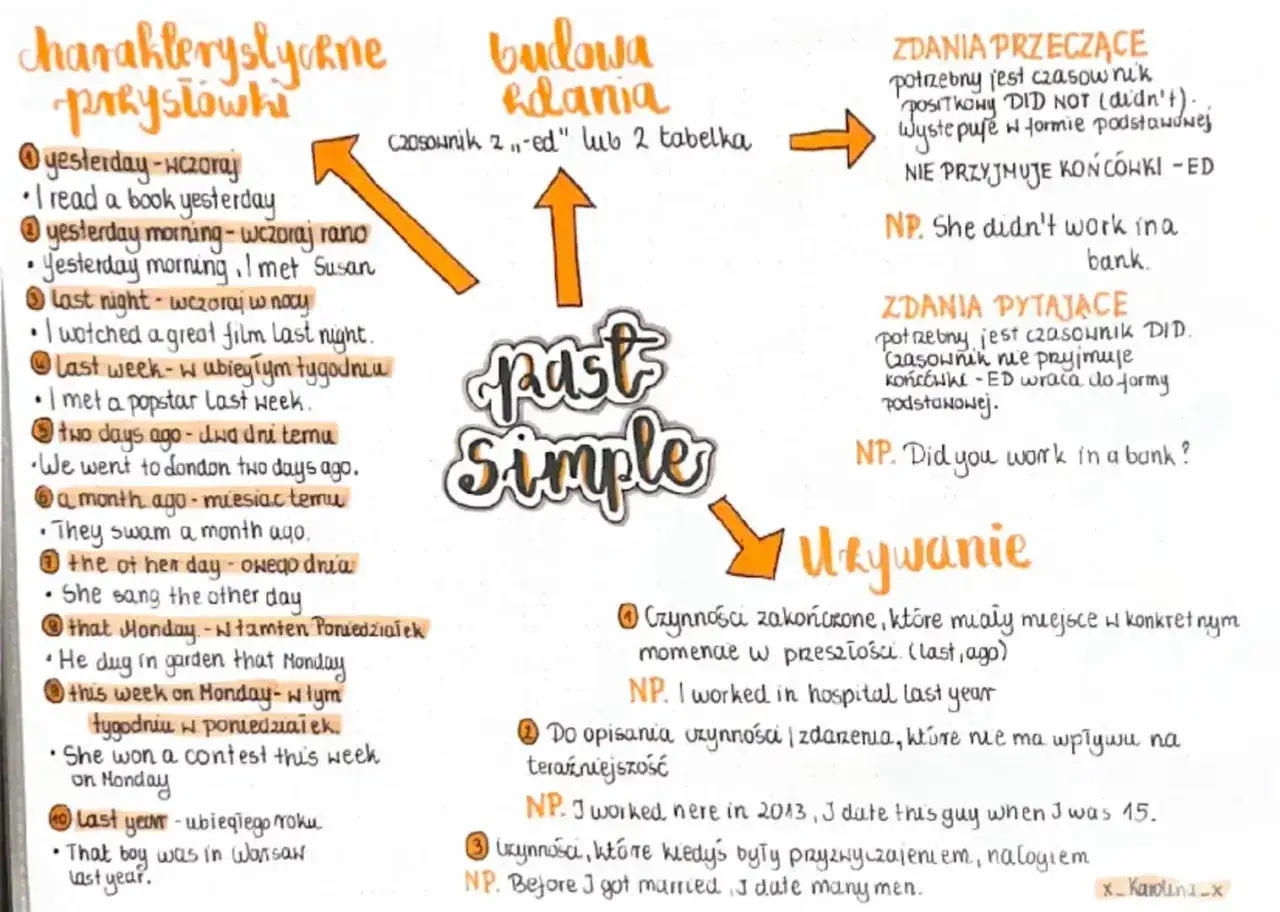 charakterystyczne
przysłówki
1 yesterday - wczoraj
• I read a book yesterday
2 yesterday morning - wczoraj rano
• Yesterday morning, I met Susan
3 last night - wczoraj w nocy
• I watched a great film last night.
4 last week - w ubiegłym tygodniu
• I met a popstar last week.
5 two days ago - dwa dni temu
• We went to London two days ago.
6 a month ago - miesiąc temu
• They swam a month ago.
7 the other day - owego dnia
• She sang the other day
8 that Monday - w tamten Poniedziałek
• He dug in garden that Monday
9 this week on Monday - w tym
tygodniu w poniedziałek.
• She won a contest this week
on Monday
10 Last year - ubiegłego roku
• That boy was in Warsaw
last year.
budowa
zdania
czasownik z „-ed" lub 2 tabelka
past
simple
ZDANIA PRZECZĄCE
potrzebny jest czasownik
posiłkowy DID NOT (didn't).
Występuje w formie podstawowej
NIE PRZYJMUJE KOŃCÓWKI -ED
NP. She didn't work in a
bank.
ZDANIA PYTAJĄCE
potrzebny jest czasownik DID.
Czasownik nie przyjmuje
końcówki -ED wraca do formy
podstawowej.
NP. Did you work in a bank?
Używanie
1 Czynności zakończone, które miały miejsce w konkretnym
momencie w przeszłości. (last, ago)
NP. I worked in hospital last year
2 Do opisania czynności / zdarzenia, które nie ma wpływu na
teraźniejszość
NP. I worked here in 2013, I date this guy when I was 15.
3 Czynności, które kiedyś były przyzwyczajeniem, nałogiem
NP. Before I got married, I date many men.
x_Karolina_x